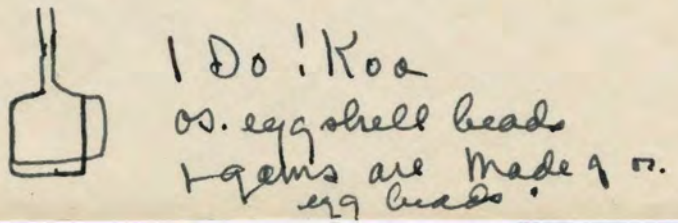 1 Do !Koa
os. eggshell beads
are made of os.
egg beads.